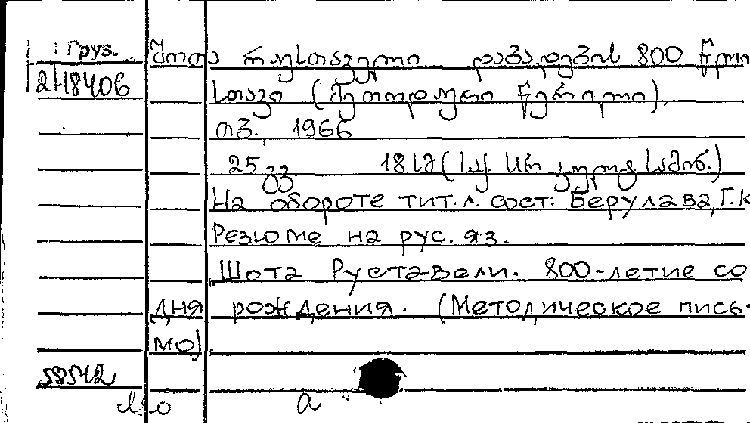 Груз. შოთა რუსთაველი დაბადების 800 წლი
2-18406 სთავი (მეთოდური წერილი).
თბ., 1966
25 გვ 18 სმ (საქ. სსრ კულტ. სამინ.)
На обороте тит. л. сост: Берулава, Г.К
Резюме на рус. яз.
Шота Руставели. 800-летие со
дня рождения. (Методическое пись-
мо).
а